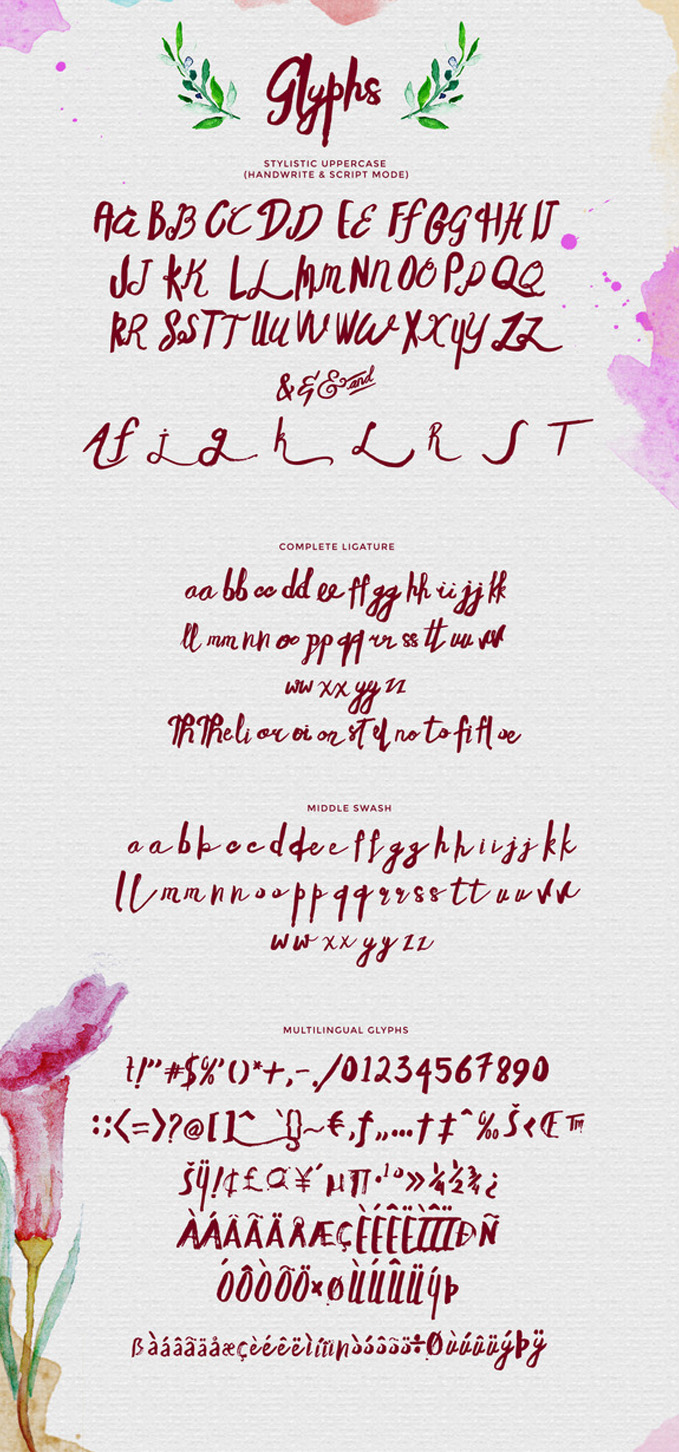 Glyphs
STYLISTIC UPPERCASE
(HANDWRITE & SCRIPT MODE)
Aa BB CC DD EE Ff GG HH IJ
JJ KK LL Mm Nn OO PP QQ
RR SS TT UU VV WW XX YY ZZ
& & & and
A f j g k L R S T
COMPLETE LIGATURE
aa bb cc dd ee ff gg hh ii jj kk
ll mm nn oo pp qq rr ss tt uu vv
ww xx yy zz
Th Th el i or oi on st of no to fi fl oe
MIDDLE SWASH
a a b b c c d d e e f f g g h h i i j j k k
l l m m n n o o p p q q r r s s t t u u v v
w w x x y y z z
MULTILINGUAL GLYPHS
!"#$%'()*+,-./01234567890
:;<=>?@[]^`{}~€,ƒ„…†‡ˆ‰Š‹Œ™
šÿ!¢£¤¥´µ¶·¹º»¼½¾¿
ÀÁÂÃÄÅÆÇÈÉÊËÌÍÎÏÐÑ
ÓÔÒÕÖרÙÚÛÜýþ
ßàáâãäåæçèéêëìíîïñòóôõö÷Øùúûüýþÿ